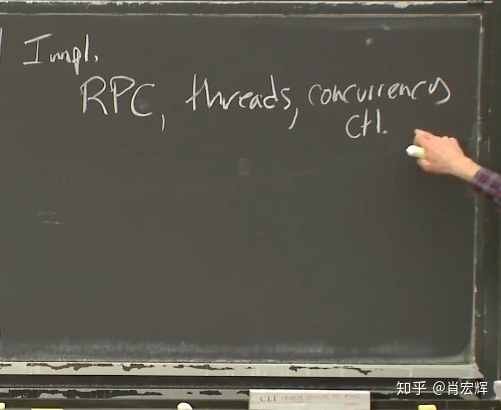 Impl.
RPC, threads, concurrency
ctl.
知乎 @肖宏辉